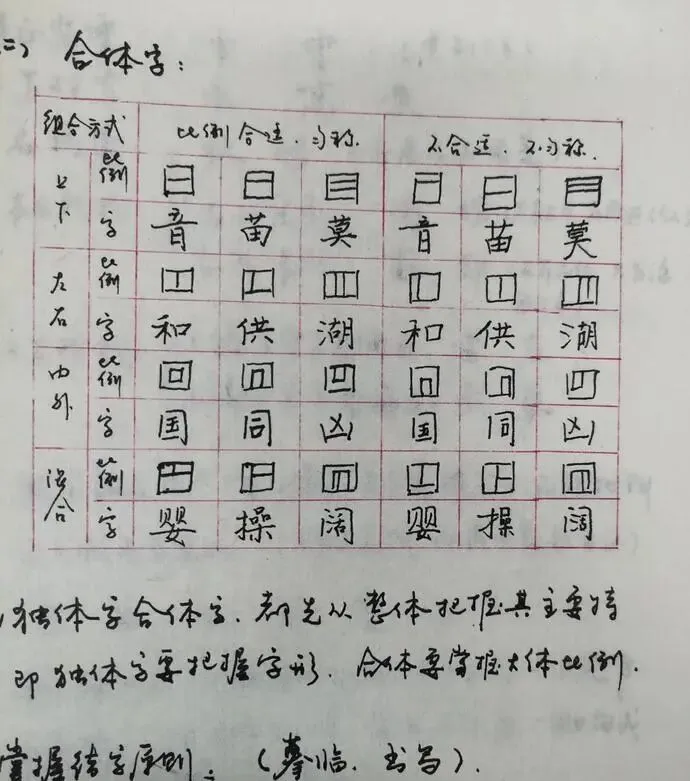 二) 合体字：
组合方式 比例合适．匀称． 不合适．不匀称．
上下 比例
字 音 苗 莫 音 苗 莫
左右 比例
字 和 供 湖 和 供 湖
内外 比例
字 国 同 凶 国 同 凶
混合 比例
字 婴 操 阔 婴 操 阔
独体字合体字．都先从整体把握其主要特
即独体字要把握字形．合体要掌握大体比例．
掌握结字原则：（摹临．书写）．